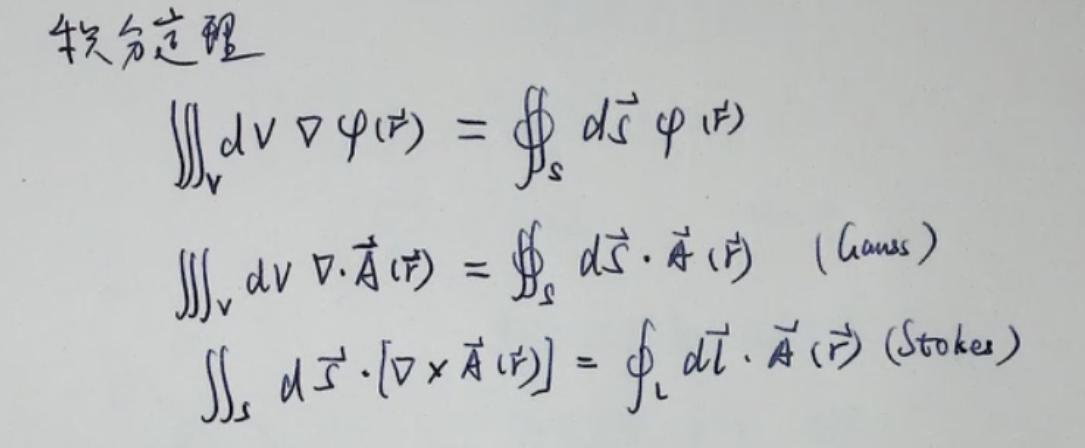 积分定理
∭_V dV ∇ φ(r⃗) = ∯_S dS⃗ φ(r⃗)
∭_V dV ∇·A⃗(r⃗) = ∯_S dS⃗·A⃗(r⃗) (Gauss)
∬_S dS⃗·[∇×A⃗(r⃗)] = ∮_L dl⃗·A⃗(r⃗) (Stokes)